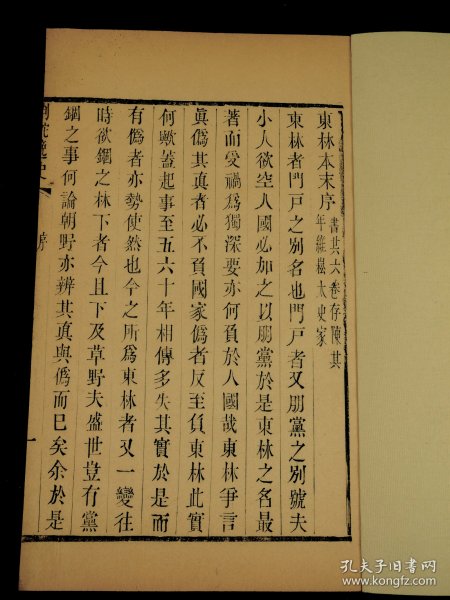 東林本末序 書共六卷存陳其
年維崧太史家
東林者門戸之别名也門戸者又朋黨之别號夫
小人欲空人國必加之以朋黨於是東林之名最
著而受禍爲獨深要亦何負於人國哉東林爭言
眞僞其眞者必不負國家僞者反至負東林此實
何歟蓋起事至五六十年相傳多失其實於是而
有僞者亦勢使然也今之所爲東林者又一變往
時欲錮之林下者今且下及草野夫盛世豈有黨
錮之事何論朝野亦辨其眞與僞而已矣余於是
序
一
孔夫子旧书网
www.kongfz.com